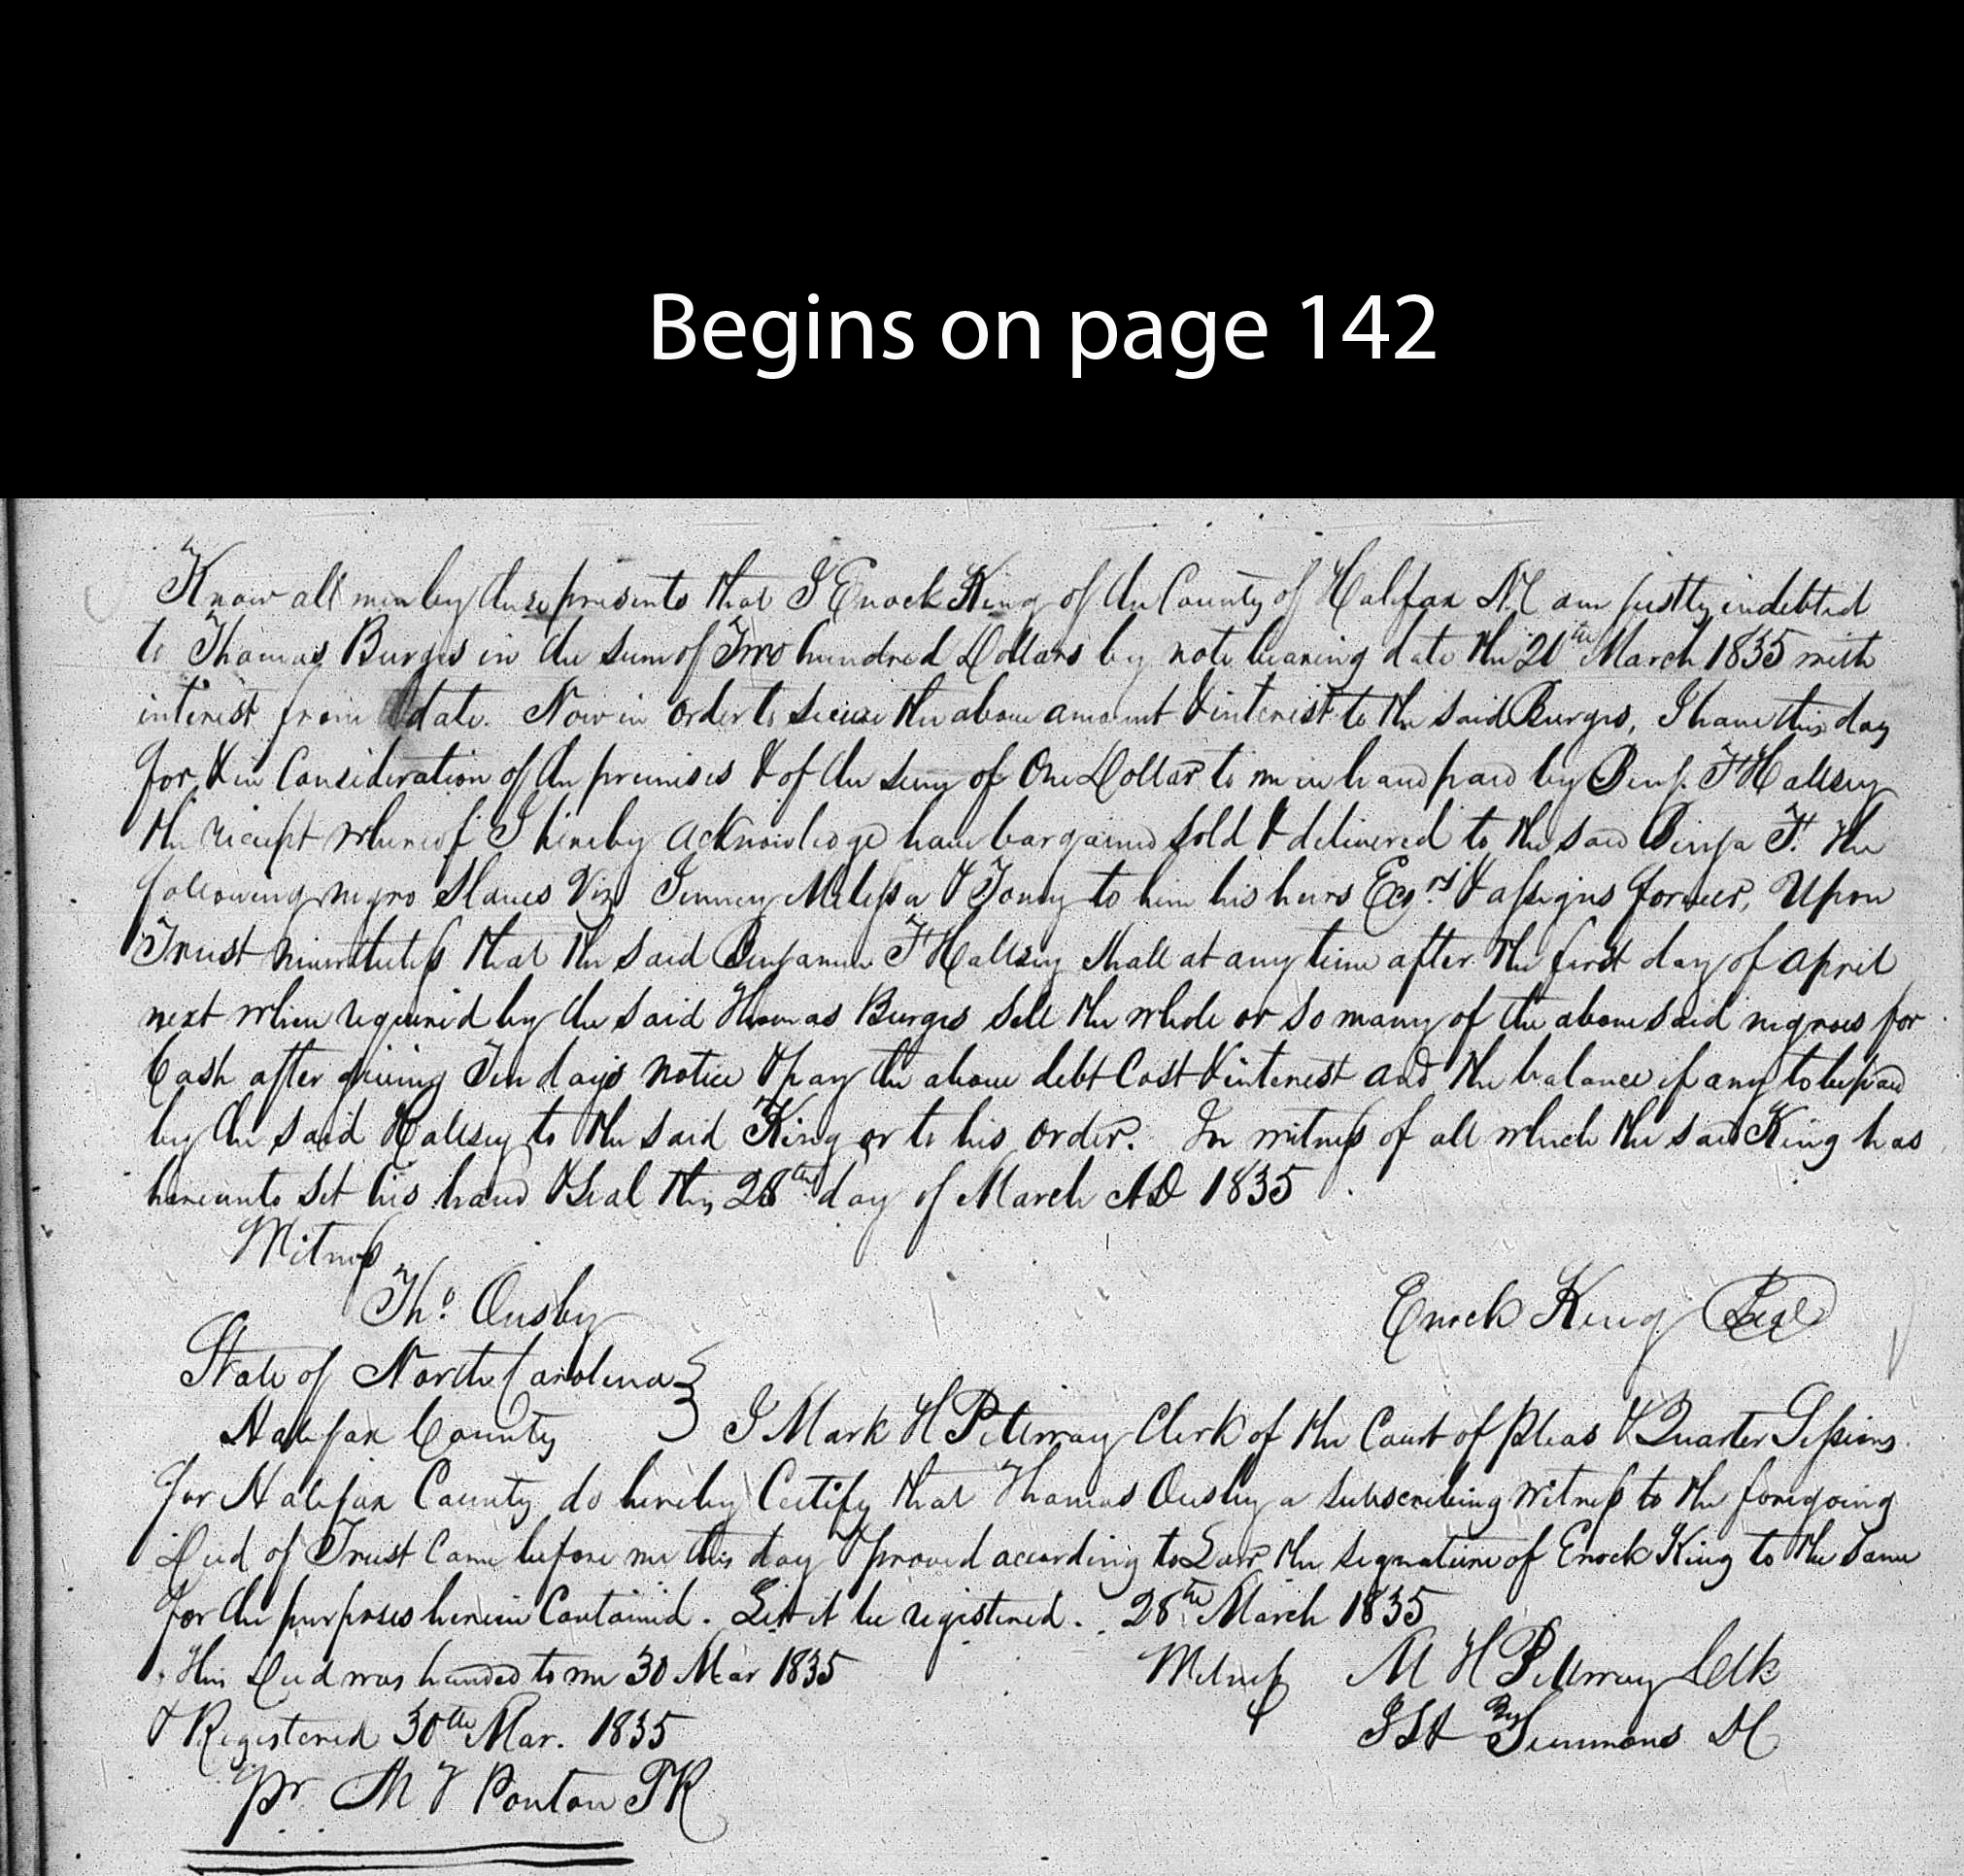 Begins on page 142
Know all men by these presents that I Enock King of the County of Halifax NC am justly indebted
to Thomas Burges in the sum of Two hundred Dollars by note bearing date the 20th March 1835 with
interest from date. Now in order to secure the above amount & interest to the said Burges, I have this day
for & in Consideration of the premises & of the sum of One Dollar to me in hand paid by Benj. F Hallsey
the receipt whereof I hereby acknowledge have bargained sold & delivered to the said Benja F. the
following negro Slaves Viz Jinney Melissa & Tomy to him his heirs Exrs. & assigns forever, Upon
Trust nevertheless that the said Benjamin F Hallsey shall at any time after the first day of April
next when required by the said Thomas Burges sell the whole or so many of the above said negroes for
Cash after giving Ten days notice & pay the above debt Cost & interest and the balance if any to be paid
by the said Hallsey to the said King or to his order. In witness of all which the said King has
hereunto set his hand & Seal this 28th day of March AD 1835
Witness
Tho. Ousby
Enock King Seal
State of North Carolina
Halifax County } I Mark H Pettway Clerk of the Court of Pleas & Quarter Sessions
for Halifax County do hereby Certify that Thomas Ousby a subscribing witness to the foregoing
Deed of Trust Came before me this day & proved according to Law the signature of Enock King to the same
for the purposes herein Contained. Let it be registered. 28th March 1835
This Deed was handed to me 30 Mar 1835
Witness M H Pettway Clk
& Registered 30th Mar. 1835
By Simmons DC
pr M T Ponton PR